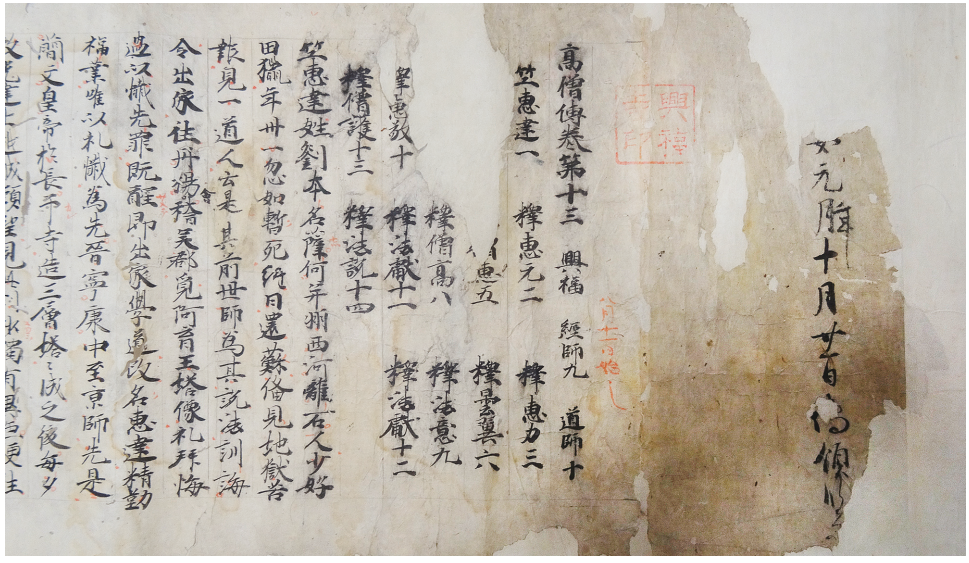 元
十月廿
興福
印
八月十一日始
高僧傳卷第十三 興福 經師九 道師十
竺惠達一 釋惠元二 釋惠力三
惠五 釋曇翼六
釋僧高八 釋法意九
釋惠敬十 釋法獻十一 釋法獻十二
釋僧護十三 釋法説十四
竺惠達姓劉本名薩何并州西河離石人少好
田獵年卅一忽如暫死經日還蘇俻見地獄苦
報見一道人云是其前世師為其説法訓誨
令出家往丹陽會稽吴郡覓阿育王塔像礼拜悔
過以懺先罪既醒即出家學道改名惠達精勤
福業唯以礼懺為先晉寧康中至京師先是
簡文皇帝於長干寺造三層塔々成之後每夕